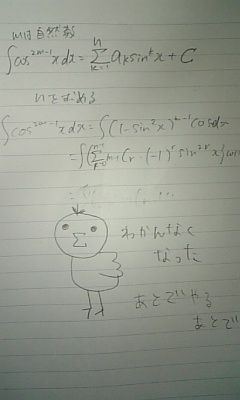 mは自然数
∫cos^{2m-1}xdx = Σ_{k=1}^{n} a_k sin^k x + C
nをもとめる
∫cos^{2m-1}xdx = ∫(1-sin²x)^{m-1}cosxdx
= ∫{Σ_{r=0}^{m-1} {}_{m-1}C_r・(-1)^r sin^{2r}x}cos
Σ
わかんなく
なった
あとでやる
あとで